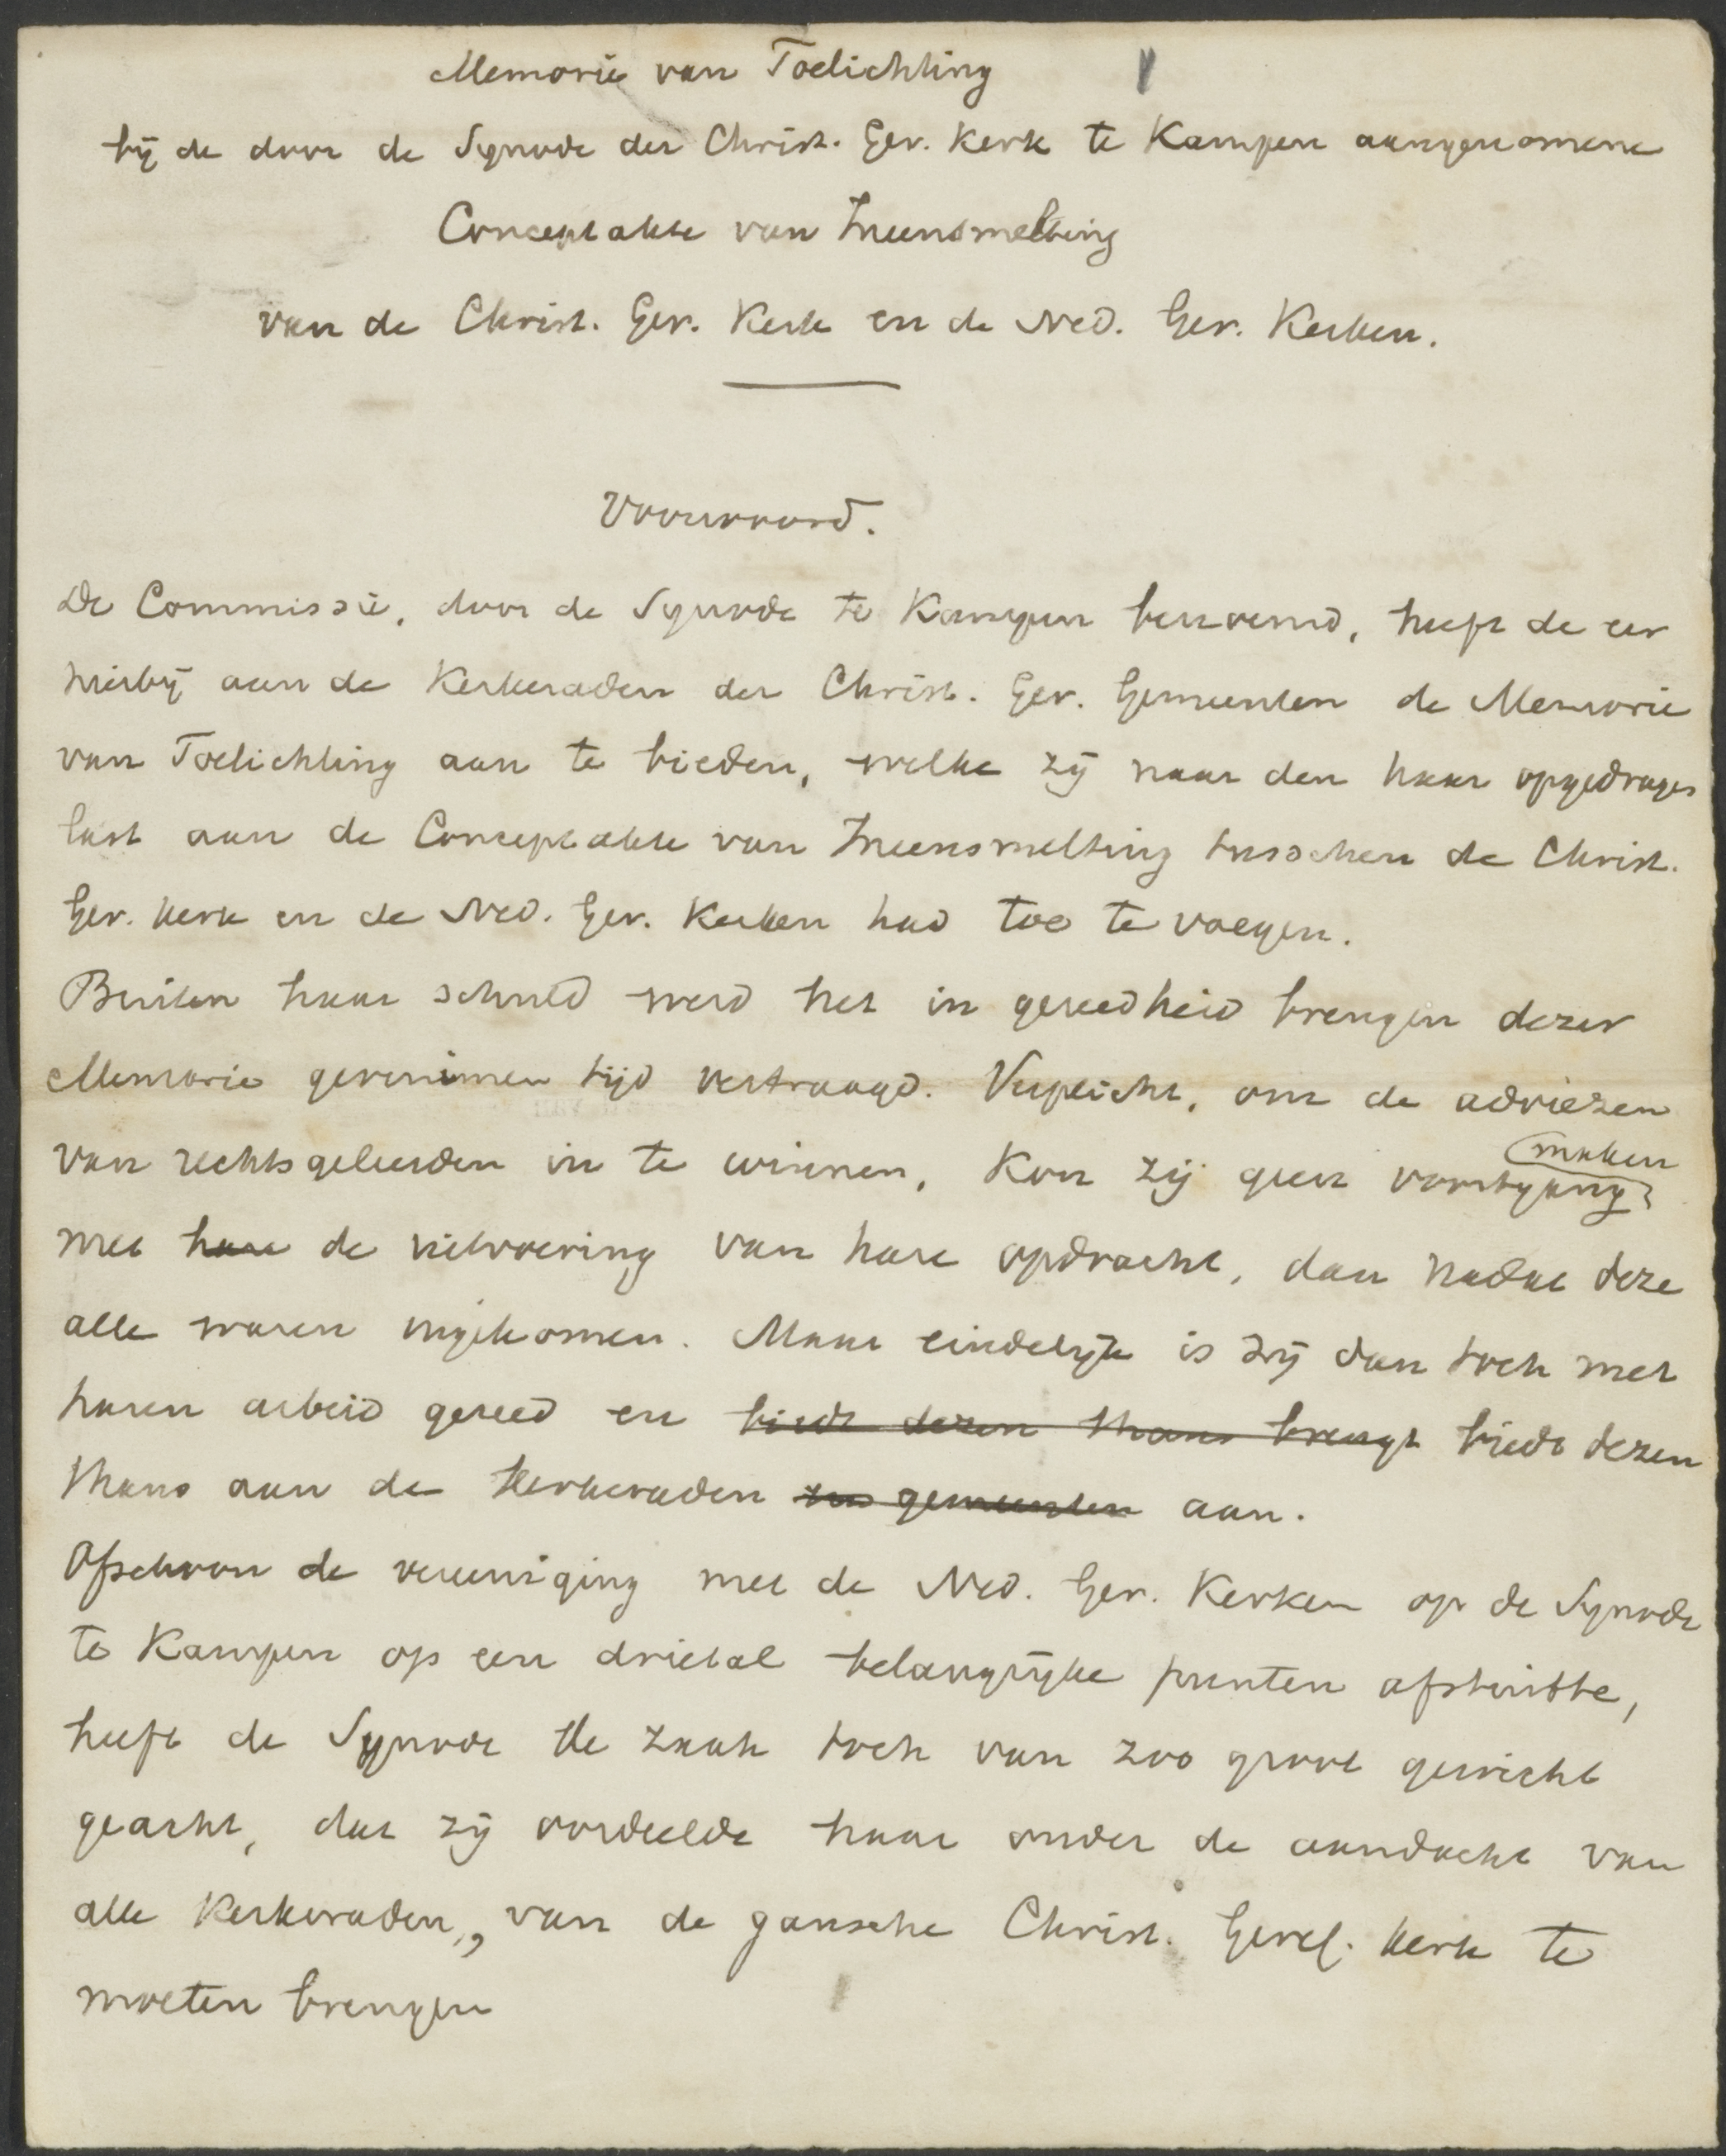 Memorie van Toelichting
bij de door de Synode der Christ. Ger. Kerk te Kampen aangenomene
Conceptakte van Ineensmelting
van de Christ. Ger. Kerk en de Ned. Ger. Kerken.
Voorwoord.
De Commissie, door de Synode te Kampen benoemd, heeft de eer
hierbij aan de Kerkeraden der Christ. Ger. Gemeenten de Memorie
van Toelichting aan te bieden, welke zij naar den haar opgedragen
last aan de Conceptakte van Ineensmelting tusschen de Christ.
Ger. Kerk en de Ned. Ger. Kerken had toe te voegen.
Buiten haar schuld werd het in gereedheid brengen dezer
Memorie geruimen tijd vertraagd. Verplicht, om de adviezen
van rechtsgeleerden in te winnen, kon zij geen voortgang maken
met hare de uitvoering van hare opdracht, dan nadat deze
alle waren ingekomen. Maar eindelijk is zij dan toch met
haren arbeid gereed en biedt dezen thans brengt biedt dezen
thans aan de Kerkeraden en gemeenten aan.
Ofschoon de vereeniging met de Ned. Ger. Kerken op de Synode
te Kampen op een drietal belangrijke punten afstuitte,
heeft de Synode de zaak toch van zoo groot gewicht
geacht, dat zij oordeelde haar onder de aandacht van
alle Kerkeraden, van de gansche Christ. Geref. Kerk te
moeten brengen